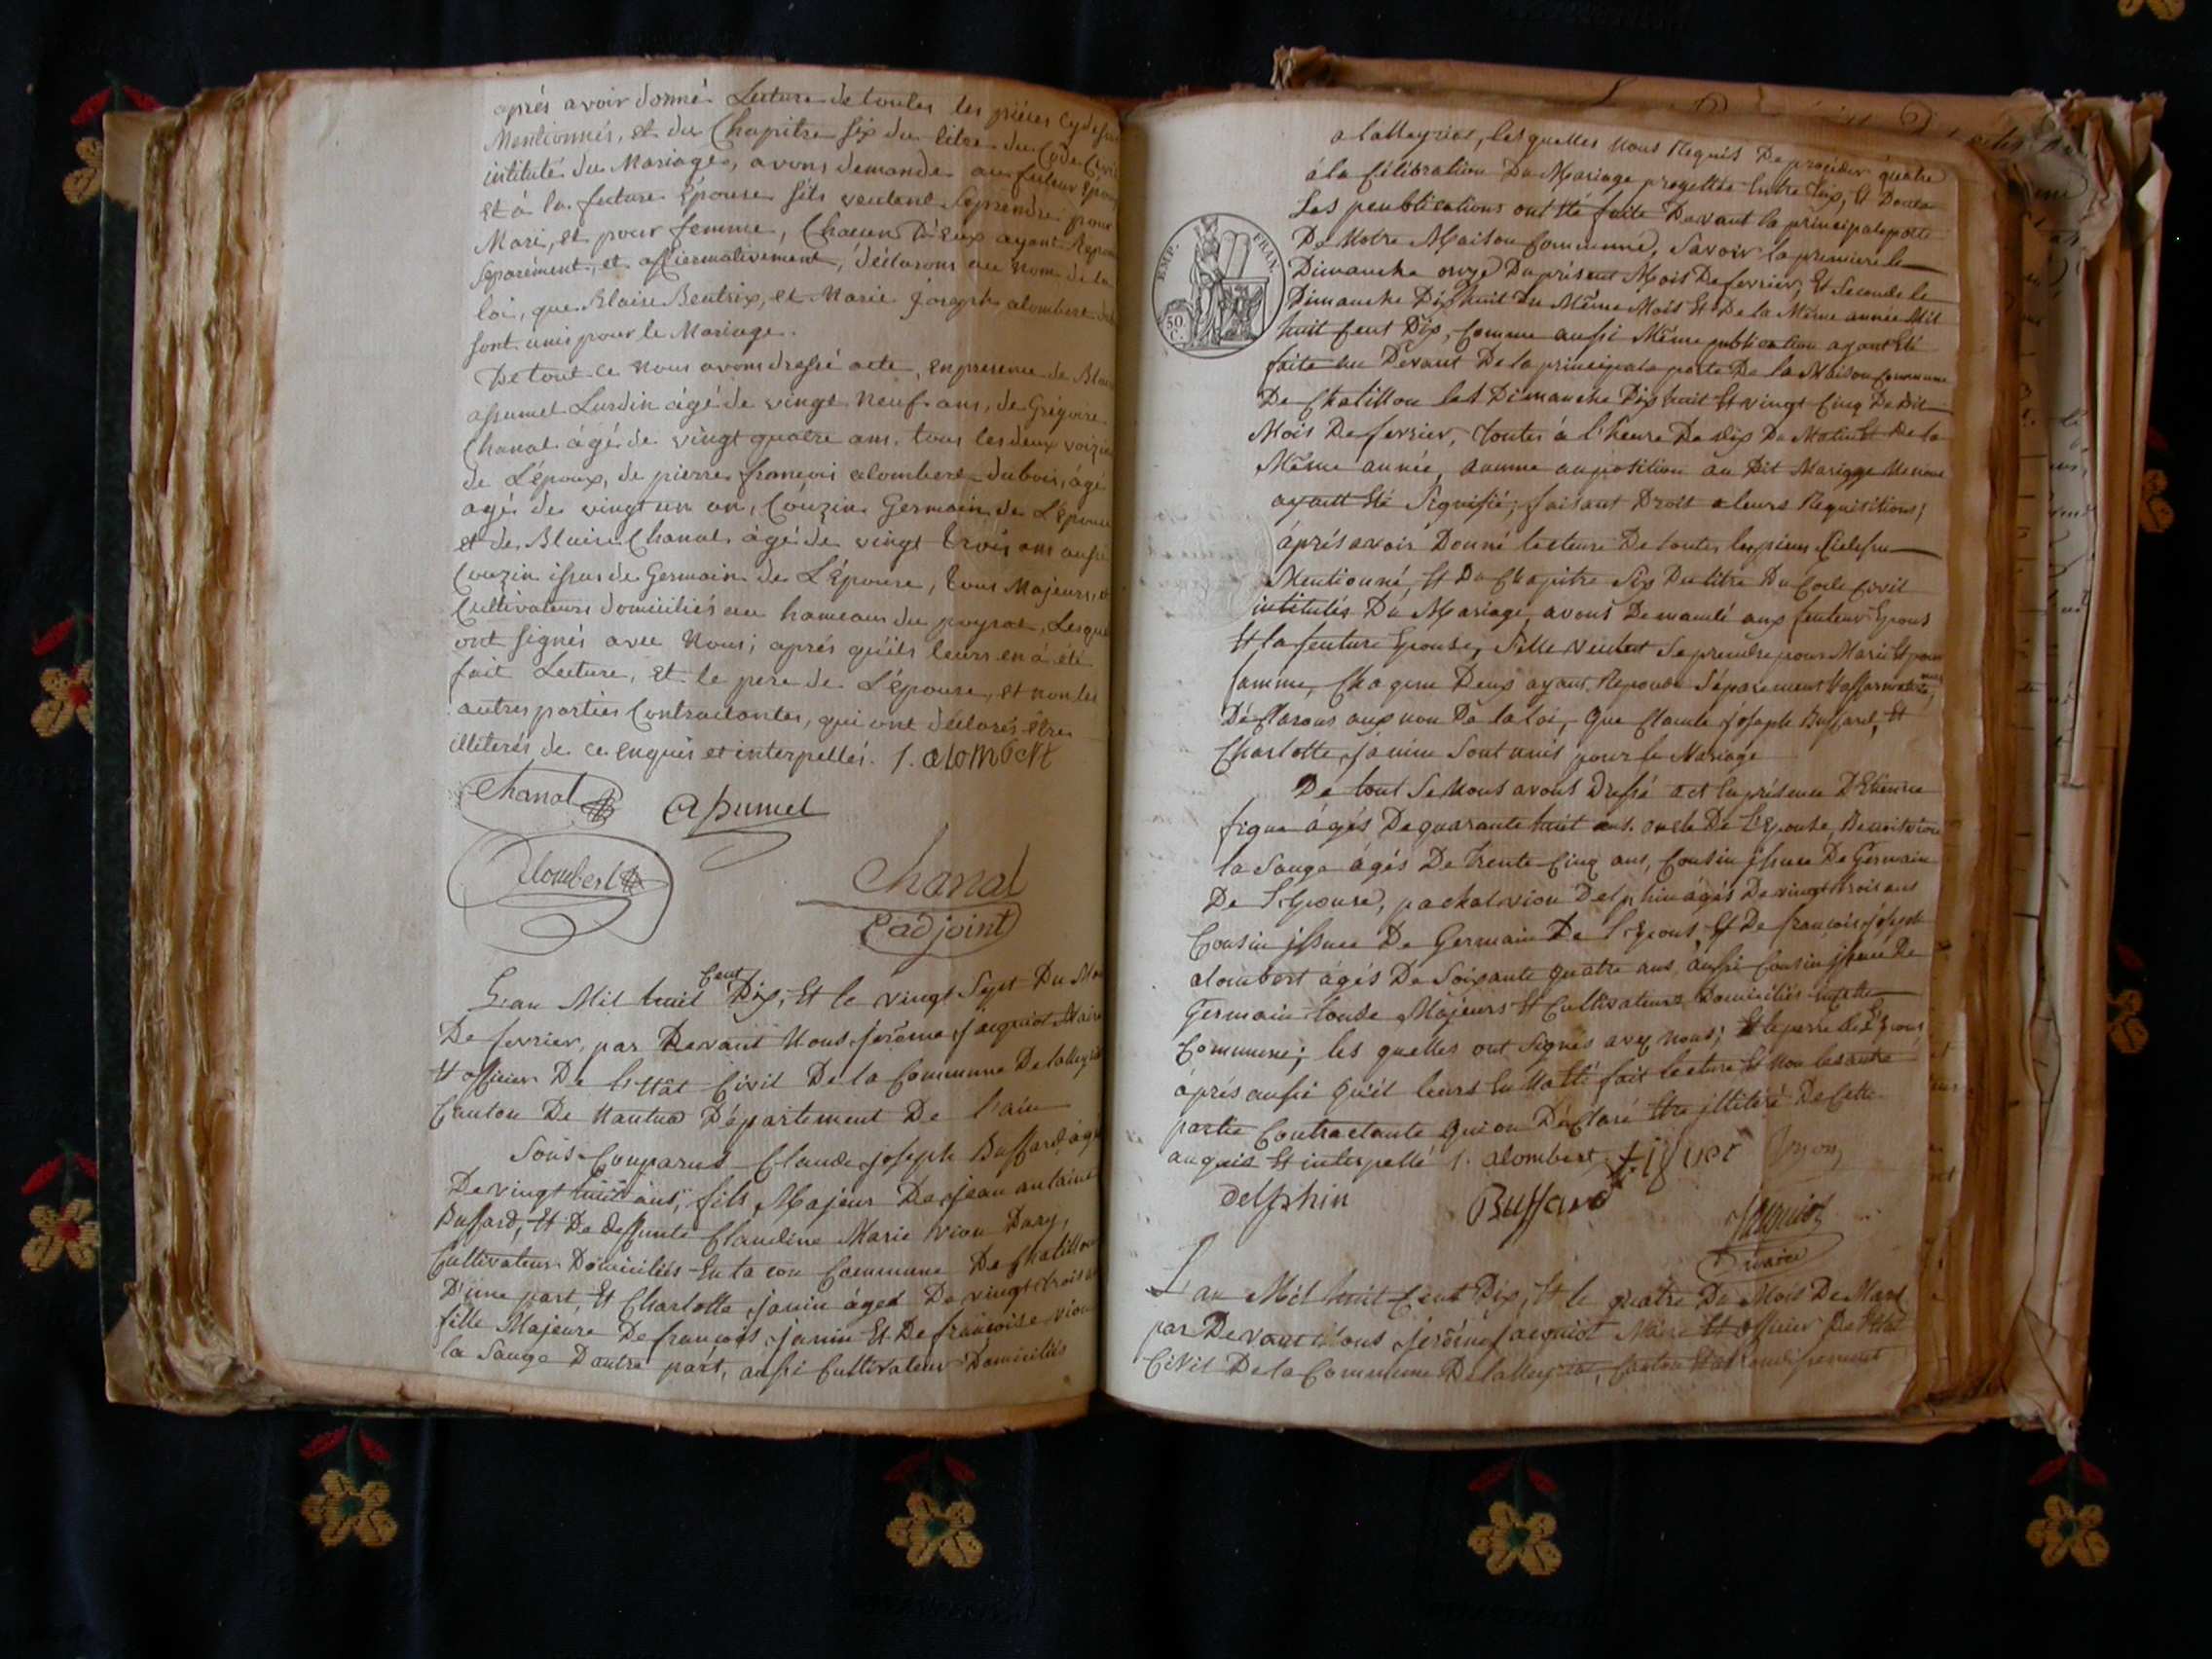 aprés avoir donné Lecture de toutes les piéces Cy dessus
Mentionnés, et du Chapitre six du titre du Code Civil
intitulé du Mariage, avons demandé au futeur Epoux
et á la future Epouse s'ils veulent se prendre pour
Mari, et pour femme, Chacun D'eux ayant Repondu
separément, et affirmativement, déclarons au nom de la
loi, que Blaise Beatrix, et Marie joseph alombert
sont unis pour le Mariage.
De tout ce nous avons dressé acte, en presence de
assumel Lurdin âgé de vingt neuf ans, de Grégoire
Chanal âgé de vingt quatre ans, tous les deux voizins
de L'époux, de pierre francois alombert-dubois, âgé
agé de vingt un an, Couzin Germain de L'épouse
et de Blaise Chanal âgé de vingt trois ans aussi
Couzin issus de Germain de L'Epouse, tous Majeurs, et
Cultivateurs domiciliés au hameau du poyzat, Lesquels
ont signés avec Nous, aprés qu'ils leurs en á été
fait Lecture, et le pere de L'épouse, et non les
autres parties Contractantes, qui ont déclarés être
illiterés de ce enquis et interpellés. J. alombert
Chanal assumel
alombert Chanal
adjoint
L'an Mil huit Cent Dix, Et le vingt Sept Du Mois
De fevrier, par Devant Nous Jerôme Jacquiot Maire
Et officier De L'Etat Civil De la Commune De lalleyriat
Canton De Nantua Département De l'ain
Sous Comparus Claude joseph Buffard âgé
De vingt huit ans, fils Majeur De jean antoine
Buffard, Et De deffunte Claudine Marie vion Dury,
Cultivateurs Domiciliés En la Commune De Chatillon
D'une part, Et Charlotte janin âgée De vingt trois ans
fille Majeure De francois janin Et De francoise vion
la Sauge D'autre part, aussi Cultivateurs Domiciliés
EMP. FRAN.
50 C.
a lalleyriat, lesquelles Nous Requis De proceder
á la Célébration Du Mariage projettée Entre Eux, Et Dont
Les peublications ont été faite Devant la principale porte
De Notre Maison Commune, Savoir la premiere le
Dimanche onze Du présent Mois De fevrier, Et Seconde le
Dimanche Dix huit Du Même Mois Et De la Même année Mil
huit Cent Dix, Comme aussi Même publication ayant Eté
faite au Devant De la principale porte De la Maison Commune
De Chatillon les Dimanche Dix huit Et vingt Cinq De Dit
Mois De fevrier, toutes á l'heure De dix Du Matin Et De la
Même année, aucune auposition au Dit Mariage Ne nous
ayant Eté Signifié; faisant Droit a leurs Requisitions;
áprés avoir Donné lecteure De toutes les pieces
Mentionné, Et Du Chapitre Six Du titre Du Code Civil
intitulés Du Mariage, avons Demandé aux feuteur Epoux
Et la feuture Epouse, Sille veulent Se prendre pour Marie Et pour
famme, Chaqun Deux ayant Repondu Séparement
Déclarons aux non De la loi, Que Claude joseph Buffard, Et
Charlotte janin Sont unis pour le Mariage
De tout Se Nous avons Dressé act En présence D'Etienne
figue âgés De quarante huit ans oncle De L'Epouse, Benoit vion
la Sauge âgés De trente Cinq ans, Cousin issue De Germain
De L'Epouse, paskal vion Delphin âgés De vingt trois ans
Cousin issue De Germain De l'Epous, Et De françois joseph
alombert âgés De Soixante quatre ans, aussi Cousin issue De
Germain toude Majeurs Et Cultivateurs Domiciliés
Commune; les quelles ont Signés avez Nous; Et le perre De L'Epous,
áprés aussi Qu'il leurs En fait lecture Et Non les autre
partie Contractante Qui on Déclaré Etre illitéré De Cette
anquis Et interpellé J. alombert vyon
delphin Buffard Jacquiot
maire
L'an Mil huit Cent Dix, Et le quatre Du Mois De Mars
par Devant Nous Jerôme Jacquiot Maire Et officier De L'Etat
Civil De la Commune De lalleyriat, Canton Et arrondissement